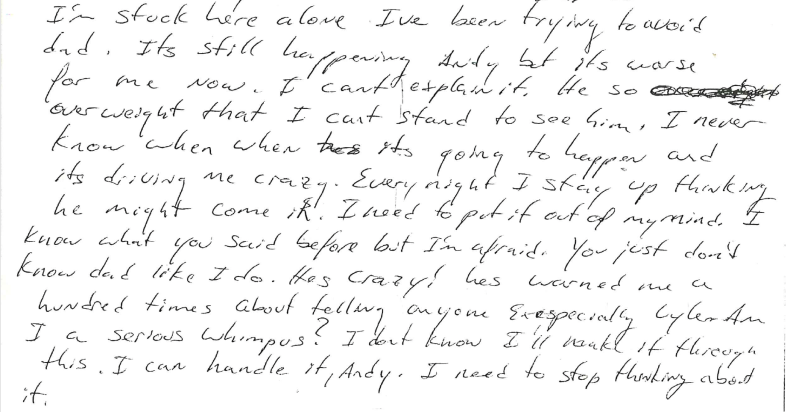 I'm stuck here alone I've been trying to avoid
dad. Its still happening Andy but its worse
for me now. I can't explain it. He so
overweight that I cant stand to see him. I never
know when when its going to happen and
its driving me crazy. Every night I stay up thinking
he might come in. I need to put it out of my mind. I
know what you said before but I'm afraid. You just don't
know dad like I do. Hes crazy! hes warned me a
hundred times about telling anyone Exespecially Lyle. Am
I a serious whimpus? I dont know I'll make it through
this. I can handle it, Andy. I need to stop thinking about
it.